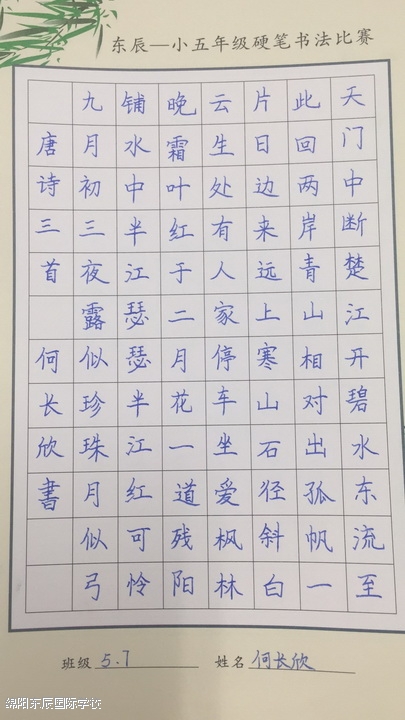 东辰一小五年级硬笔书法比赛
天门中断楚江开碧水东流至
此回两岸青山相对出孤帆一
片日边来远上寒山石径斜白
云生处有人家停车坐爱枫林
晚霜叶红于二月花一道残阳
铺水中半江瑟瑟半江红可怜
九月初三夜露似珍珠月似弓
唐诗三首 何长欣書
班级 5.7 姓名 何长欣
绵阳东辰国际学校